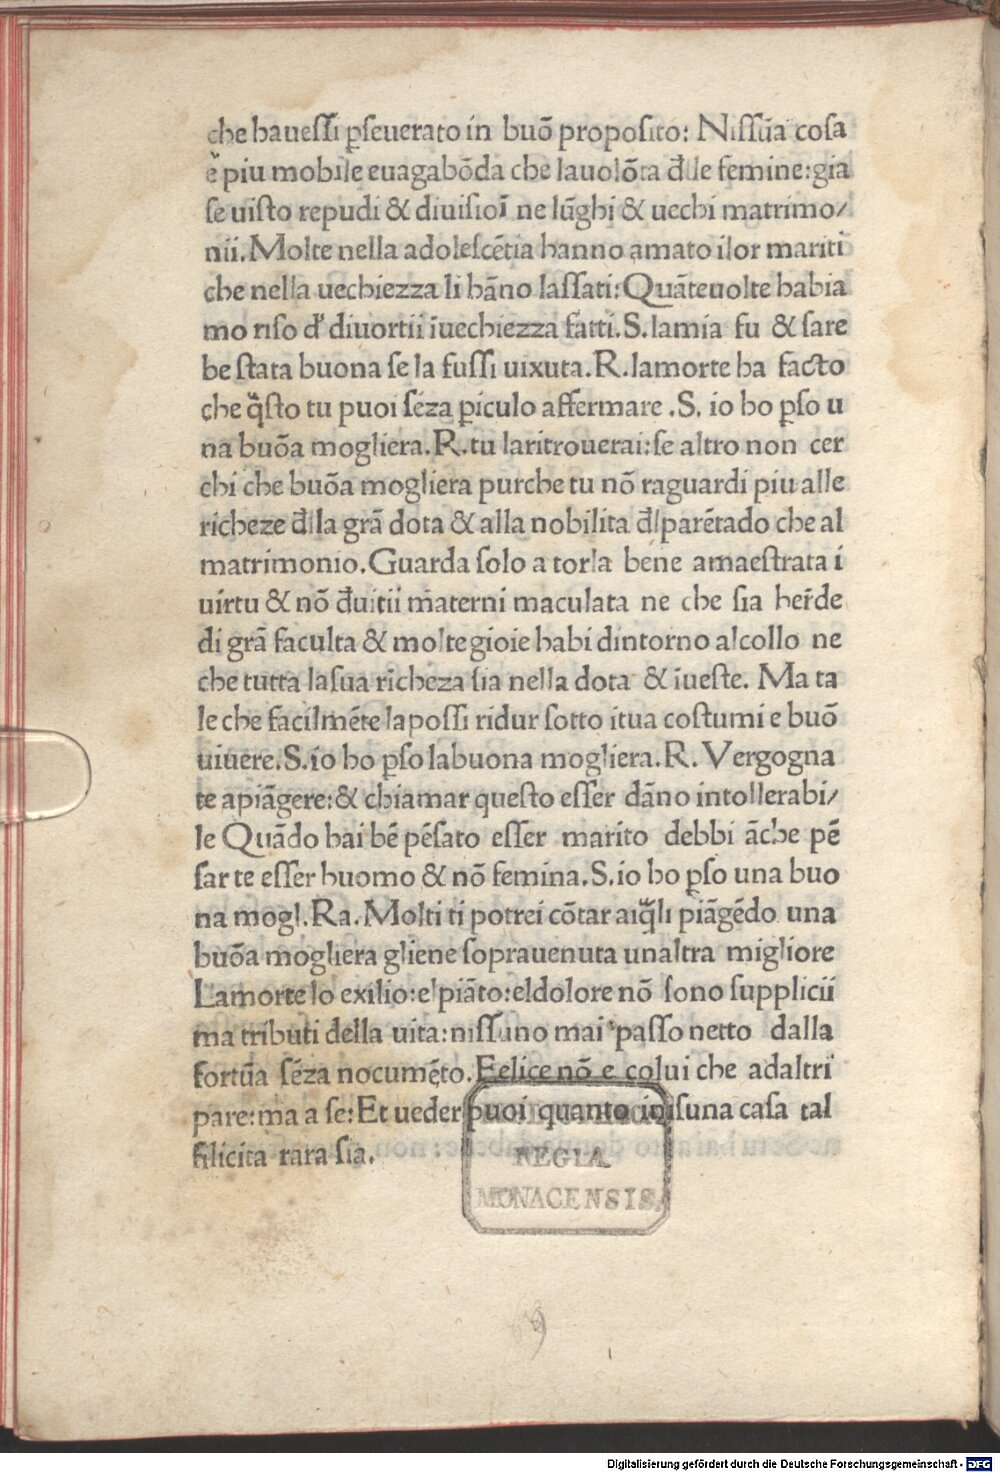 che haueſſi ꝑſeuerato in buō propoſito: Niſſūa coſa
e piu mobile euagabōda che lauolōta đlle femine:gia
ſe uiſto repudi & diuiſioī ne lūghi & uechi matrimo/
nii. Molte nella adoleſcētia hanno amato ilor mariti
che nella uechiezza li hāno laſſati: Quāteuolte habia
mo riſo đ diuortii īuechiezza fatti. S. lamia fu & ſare
be ſtata buona ſe la fuſſi uixuta. R. lamorte ha facto
che q̄ſto tu puoi ſēza ꝑiculo affermare .S. io ho ꝑſo u
na buōa mogliera. R. tu laritrouerai:ſe altro non cer
chi che buōa mogliera purche tu nō raguardi piu alle
richeze đlla grā dota & alla nobilita đlparētado che al
matrimonio. Guarda ſolo a torla bene amaeſtrata i
uirtu & nō đuitii m̄aterni maculata ne che ſia her̄de
di grā faculta & molte gioie habi dintorno alcollo ne
che tutta laſua richeza ſia nella dota & īueſte. Ma ta
le che facilmēte lapoſſi ridur ſotto itua coſtumi e buō
uiuere. S. io ho ꝑſo labuona mogliera. R. Vergogna
te apiāgere: & chiamar queſto eſſer dāno intollerabi/
le Quādo hai bē pēſato eſſer marito debbi āche pē
ſar te eſſer huomo & nō femina. S. io ho ꝑſo una buo
na mogl. Ra. Molti ti potrei cōtar aiq̄li piāgēdo una
buōa mogliera gliene ſoprauenuta unaltra migliore
Lamorte lo exilio:elpiāto:eldolore nō ſono ſupplicii
ma tributi della uita:niſſuno mai paſſo netto dalla
fortūa ſēza nocumēto. Felice nō e colui che adaltri
pare:ma a ſe: Et ueder puoi quanto inſuna caſa tal
filicita rara ſia.
REGIA
MONACENSIS.
Digitalisierung gefördert durch die Deutsche Forschungsgemeinschaft - DFG